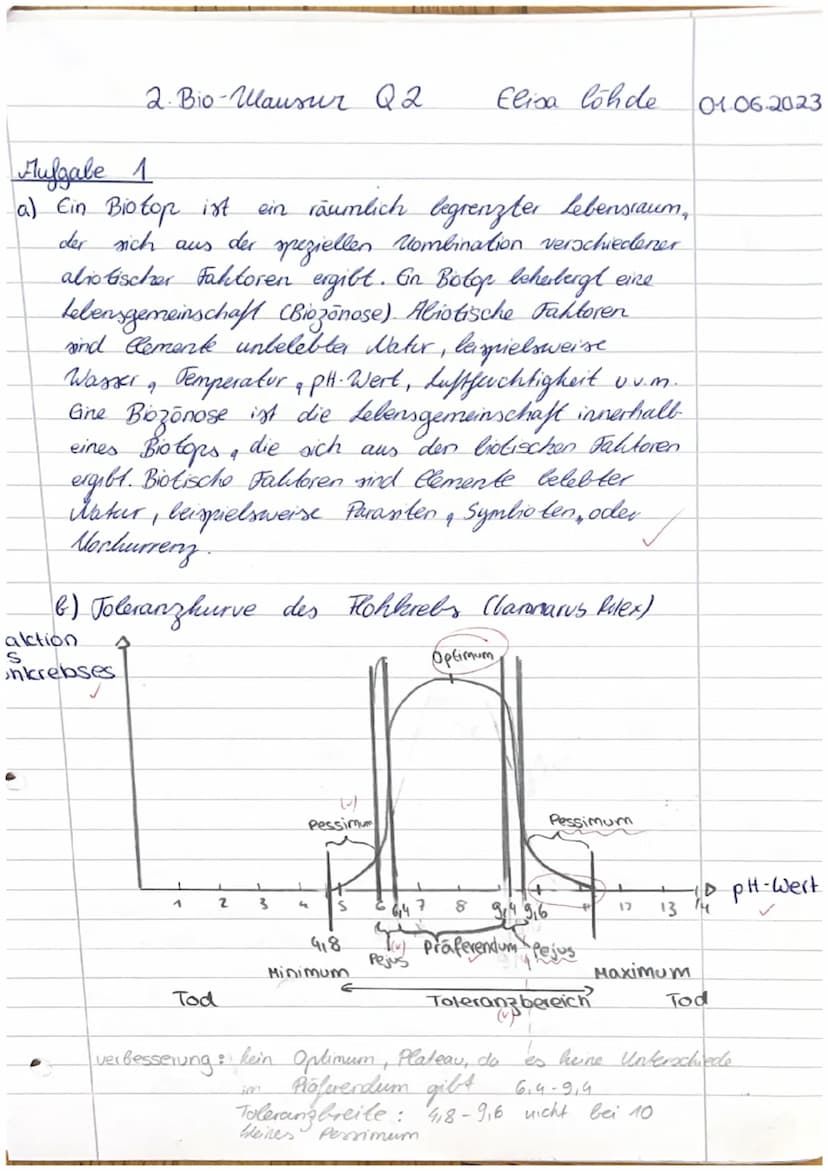 2. Bio-Klausur Q2 Elisa Löhde 01.06.2023
Aufgabe 1
a) Ein Biotop ist ein räumlich begrenzter Lebensraum,
der sich aus der speziellen Kombination verschiedener
abiotischer Faktoren ergibt. Ein Biotop beherbergt eine
Lebensgemeinschaft (Biozönose). Abiotische Faktoren
sind Elemente unbelebter Natur, beispielsweise
Wasser, Temperatur, pH-Wert, Luftfeuchtigkeit uvm.
Eine Biozönose ist die Lebensgemeinschaft innerhalb
eines Biotops, die sich aus den biotischen Faktoren
ergibt. Biotische Faktoren sind Elemente belebter
Natur, beispielsweise Parasiten, Symbionten, oder
Konkurrenz.
b) Toleranzkurve des Flohkrebs (Gammarus Pulex)
aktion
s
hkrebses
Optimum
Pessimum
Pessimum
1 2 3 4 5 6 6,4 7 8 9,4 9,6 11 12 13 14
pH-Wert
4,8
Pejus
Präferendum
Pejus
Minimum
Maximum
Tod
Toleranzbereich
Tod
Verbesserung: kein Optimum, Plateau, da es keine Unterschiede
im Präferendum gibt 6,4-9,4
Toleranzbreite: 4,8-9,6 nicht bei 10
kleines Pessimum